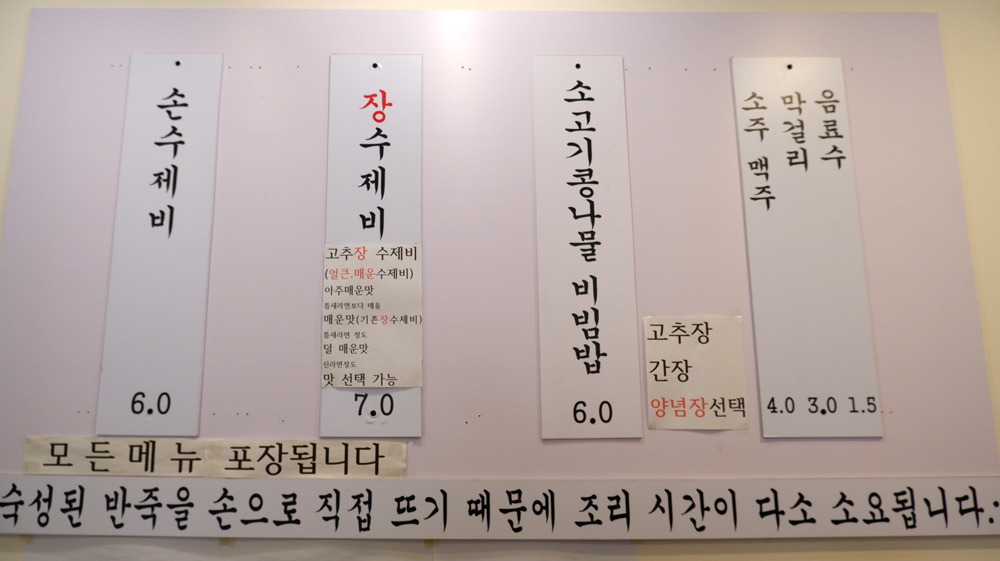 손수제비
6.0
장수제비
고추장 수제비
(얼큰.매운수제비)
아주매운맛
틈새라면보다 매움
매운맛(기존장수제비)
틈새라면 정도
덜 매운맛
신라면정도
맛 선택 가능
7.0
소고기콩나물 비빔밥
6.0
고추장
간장
양념장선택
소주 맥주
막걸리
음료수
4.0 3.0 1.5
모든메뉴 포장됩니다
숙성된 반죽을 손으로 직접 뜨기 때문에 조리 시간이 다소 소요됩니다.